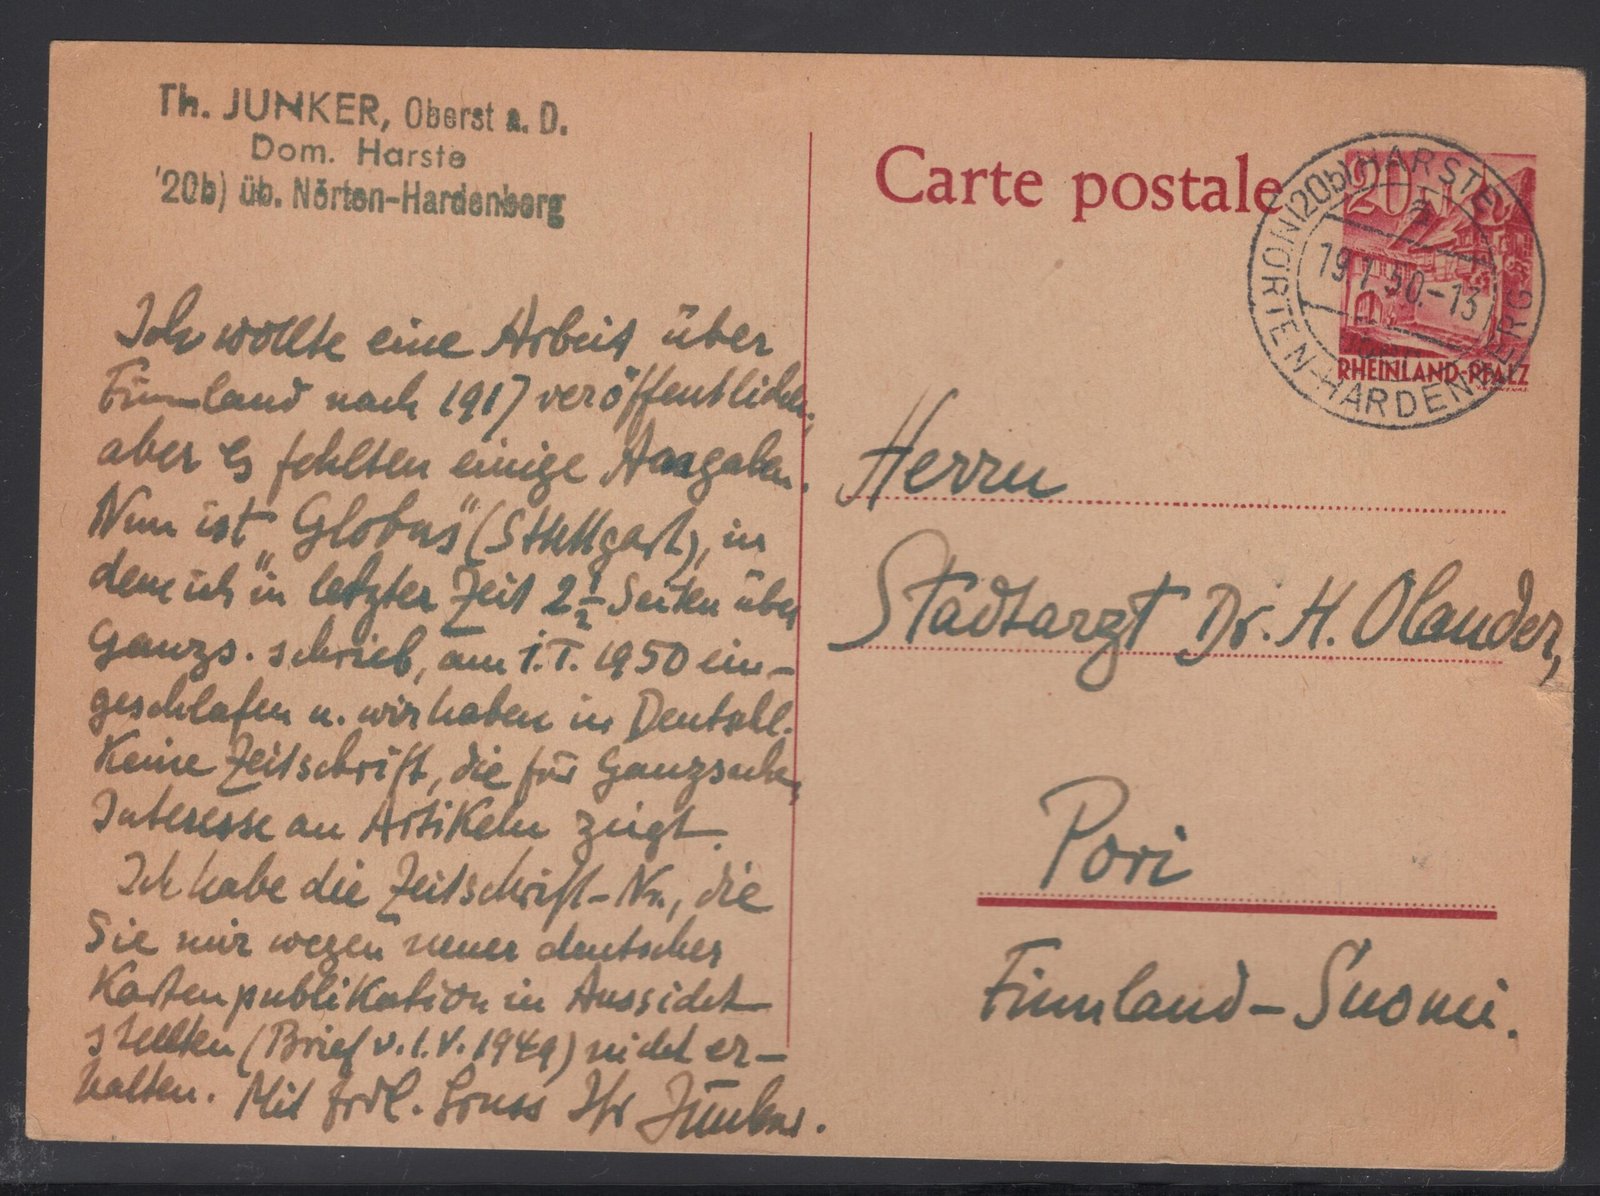 Th. JUNKER, Oberst a. D.
Dom. Harste
'20b) üb. Nörten-Hardenberg
Ich wollte eine Arbeit über
Finnland nach 1917 veröffentlichen,
aber es fehlten einige Angaben.
Nun ist "Globus" (Stuttgart), in
dem ich in letzter Zeit 2 1/2 Seiten über
Ganzs. schrieb, am 1.I.1950 ein-
geschlafen u. wir haben in Deutschl.
Keine Zeitschrift, die für Ganzsach.
Interesse an Artikeln zeigt.
Ich habe die Zeitschrift-Nr., die
Sie mir wegen neuer deutscher
Kartenpublikation in Aussicht
stellten (Brief v. 1.V.1949) nicht er-
halten. Mit frdl. Gruss Ihr Junker.
Carte postale
20
RHEINLAND-PFALZ
(20b) HARSTE
19.1.50.-13
NÖRTEN-HARDENBERG
Herrn
Stadtarzt Dr. H. Olander,
Pori
Finnland-Suomi.